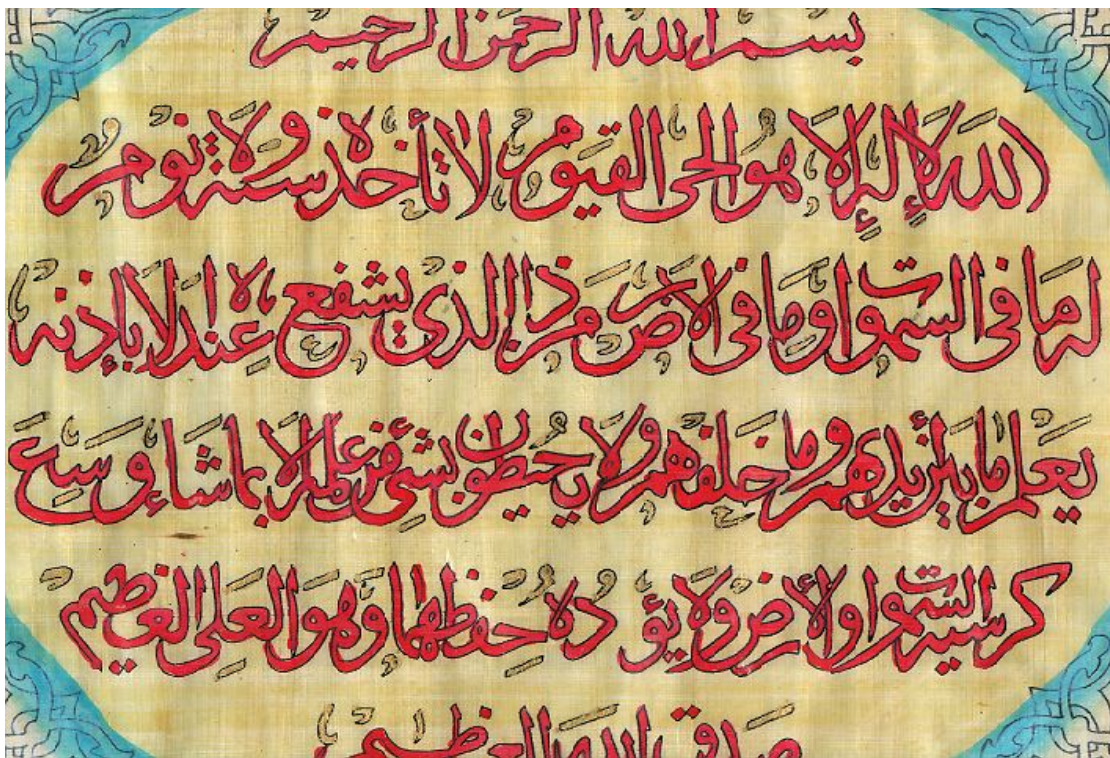 بسم الله الرحمن الرحيم
الله لا إله إلا هو الحي القيوم لا تأخذه سنة ولا نوم
له ما في السموات وما في الارض من ذا الذي يشفع عنده الا بإذنه
يعلم ما بين أيديهم وما خلفهم ولا يحيطون بشئ من علمه الا بما شاء وسع
كرسيه السموات والأرض ولا يؤوده حفظهما وهو العلي العظيم
صدق الله العظيم